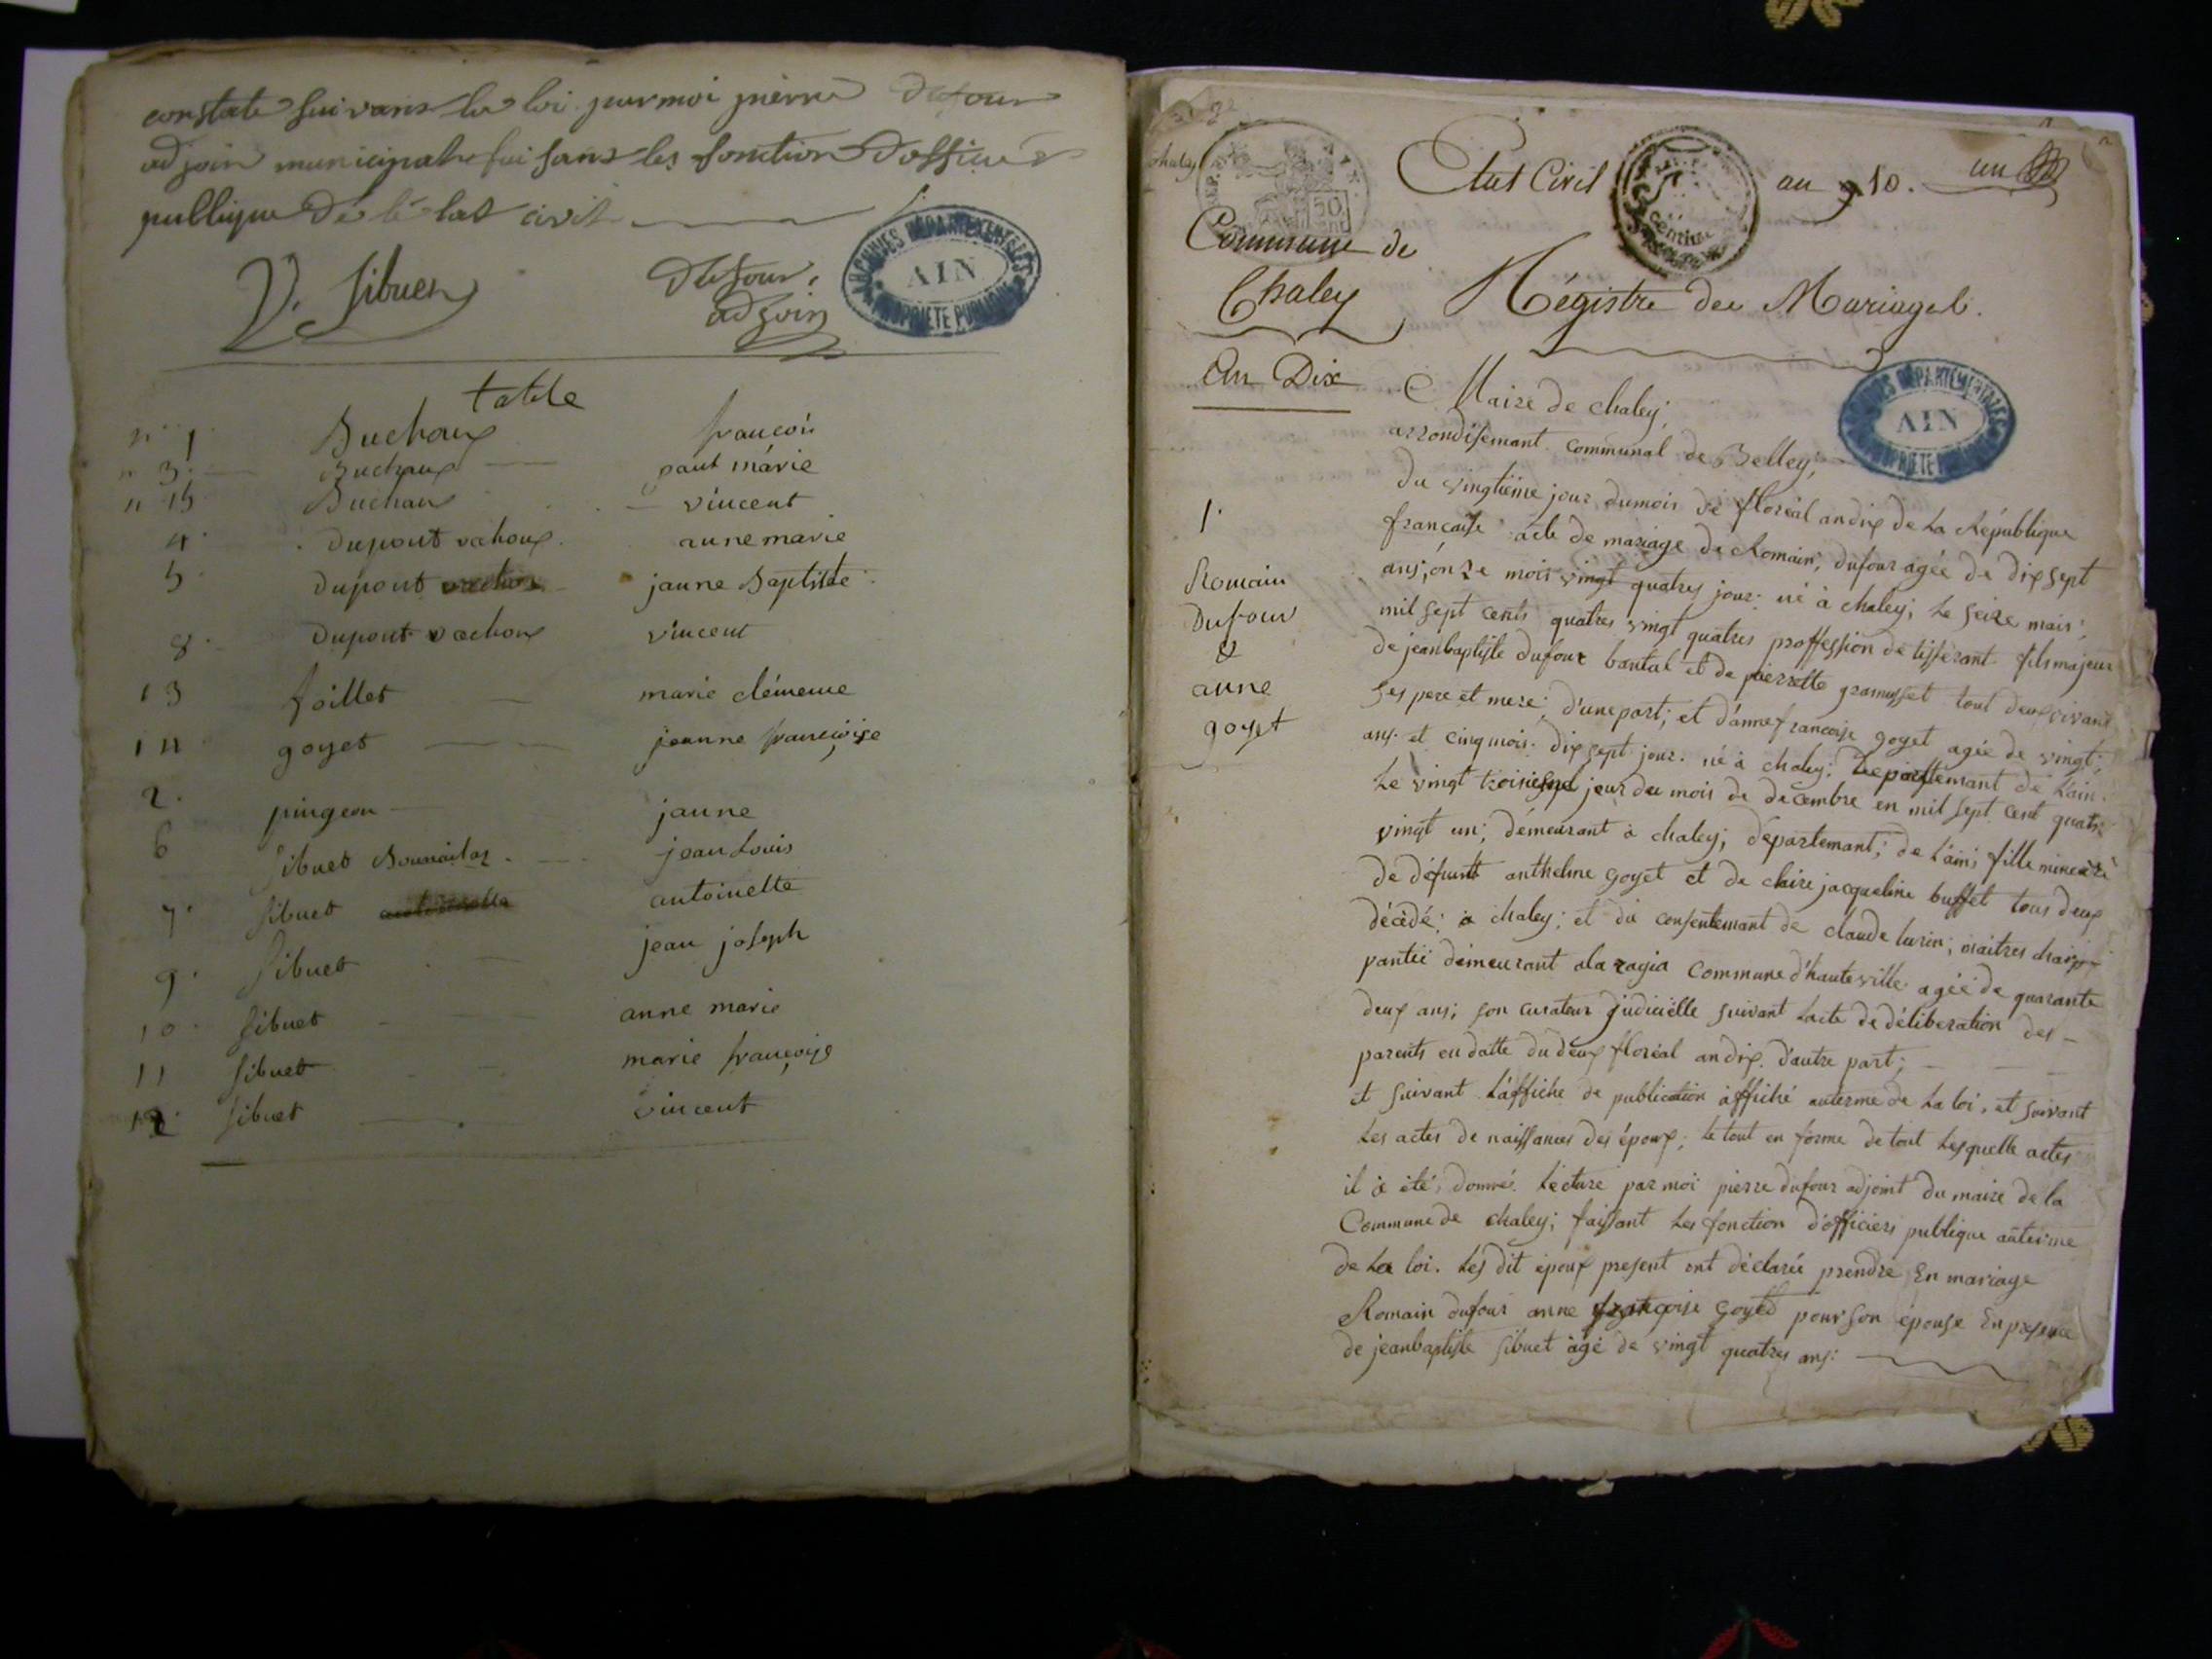 constate suivans la loi par moi pierre dufour
adjoin municipal faisans les fonction d'officier
publique de l'état civil
V. Sibuet
dufour,
adjoin
ARCHIVES DÉPARTEMENTALES
AIN
PROPRIÉTÉ PUBLIQUE
table
n° 1 Buchoux françois
n 3. Buchoux paul márie
n 15 Buchoux vincent
4 dupont vachoux anne marie
5 dupont vachon jaune Baptiste
8 dupont vachoux vincent
13 foillet marie clémence
14 goyet jeanne françoise
2. pingeon jaune
6 Sibuet jean Louis
7 Sibuet antoinette
9 Sibuet jean joseph
10 Sibuet anne marie
11 Sibuet marie françoise
12 Sibuet vincent
chaley
50
Etat Civil
centime
an 10. un
Commune de
Chaley
Régistre des Mariages.
An Dix
Maire de chaley;
arrondisemant communal de Belley;
ARCHIVES DÉPARTEMENTALES
AIN
PROPRIÉTÉ PUBLIQUE
Du vingtième jour du mois de floréal an dix de La République
1.
française acte de mariage de Romain; dufour agée de dix sept
ans; ónze mois vingt quatres jour: né à chaley; Le seize mais;
Romain
Dufour
&
anne
goyet
mil sept cents quatres vingt quatres proffession de tisserant fils majeur
de jeanbaptiste dufour bantal et de pierrette gramusset tout deux vivans
ses pere et mere; d'une part; et d'anne françoise goyet agée de vingt;
ans. et cinq mois. dix sept jour. né à chaley; Departtemant de L'ain.
Le vingt troisieme jour du mois de decembre en mil sept cent quatre
vingt un; démeurant à chaley; départemant; de L'ain; fille mineure
de défuntt anthelme goyet et de claire jacqueline buffet tous deux
décédé; à chaley; et du consentemant de claude lurin; maitres charp
pantié démeurant ala ragia Commune d'hauteville agéé de quarante
deux ans; son curateur judicielle suivant L'acte de déliberation des
parents en datte du deux floréal an dix. d'autre part;
et suivant L'affiche de publication àffiché autèrme de La loi, et suivant
Les actes de naissances des époux; Le tout en forme de tout Lesquelle actes
il à été donné. Lecture par moi pierre dufour adjoint du maire de la
Commune de chaley; faissant Les fonction d'officiers publique autèrme
de La loi. Lés dit époux present ont déclarée prendre En mariage
Romain dufour anne françoise Goyed pour son épouse En présence
de jeanbaptiste sibuet agé de vingt quatres ans: